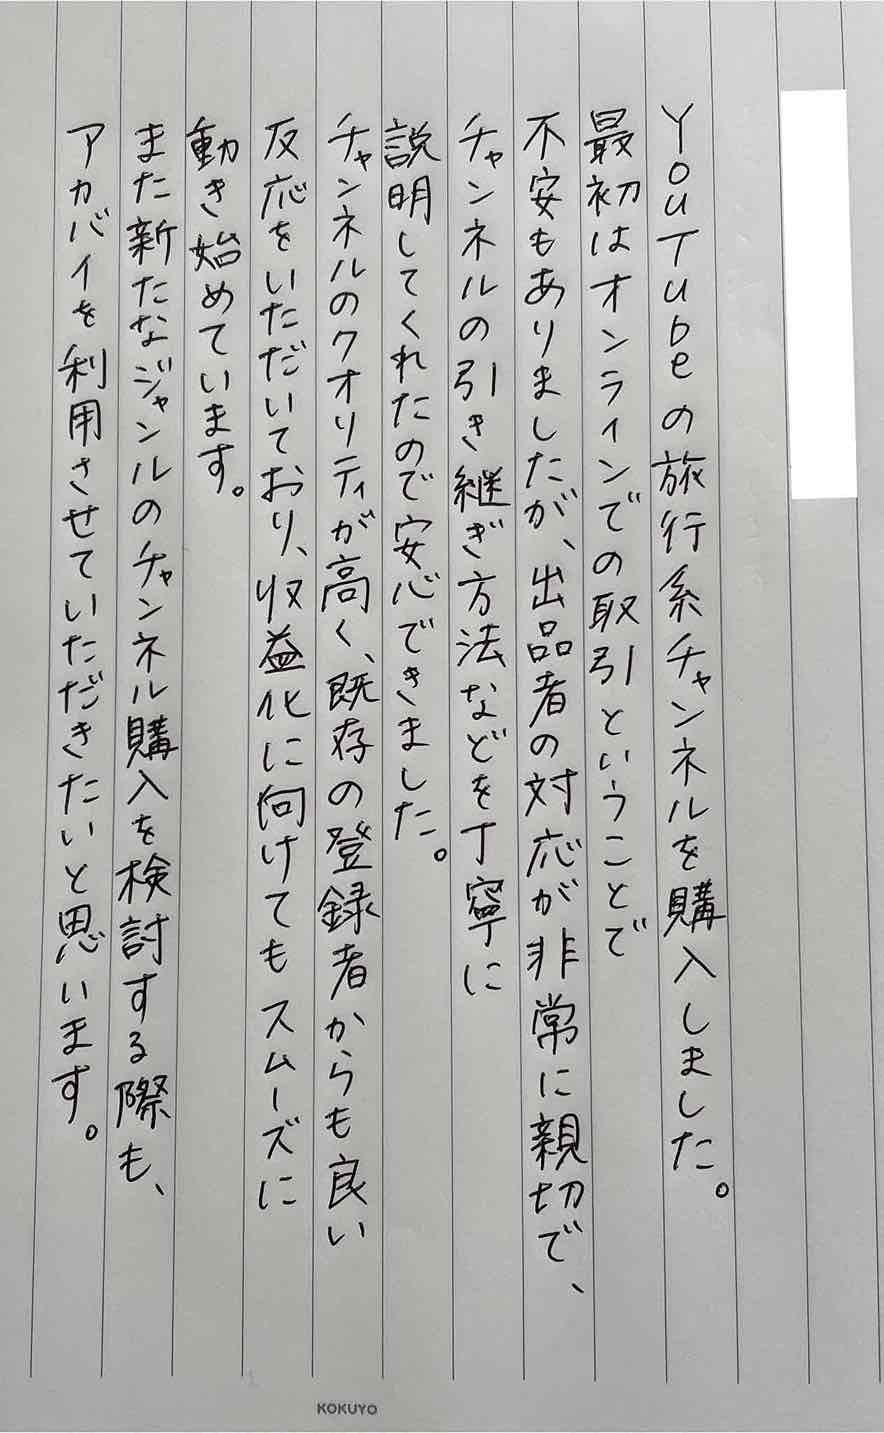 YouTubeの旅行系チャンネルを購入しました。
最初はオンラインでの取引ということで
不安もありましたが、出品者の対応が非常に親切で、
チャンネルの引き継ぎ方法などを丁寧に
説明してくれたので安心できました。
チャンネルのクオリティが高く、既存の登録者からも良い
反応をいただいており、収益化に向けてもスムーズに
動き始めています。
また新たなジャンルのチャンネル購入を検討する際も、
アカバイを利用させていただきたいと思います。
KOKUYO